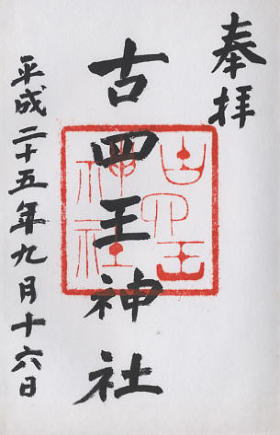 奉拝
古四王神社
古四王神社
平成二十五年九月十六日